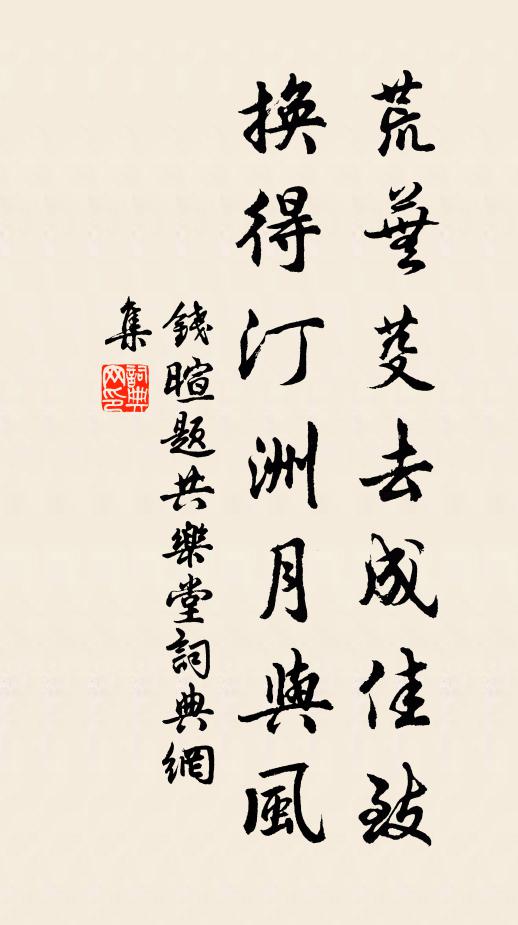 荒蕪芟去成佳致
換得汀洲月與風
錢暄題共樂堂詞典網
集
詞典网印